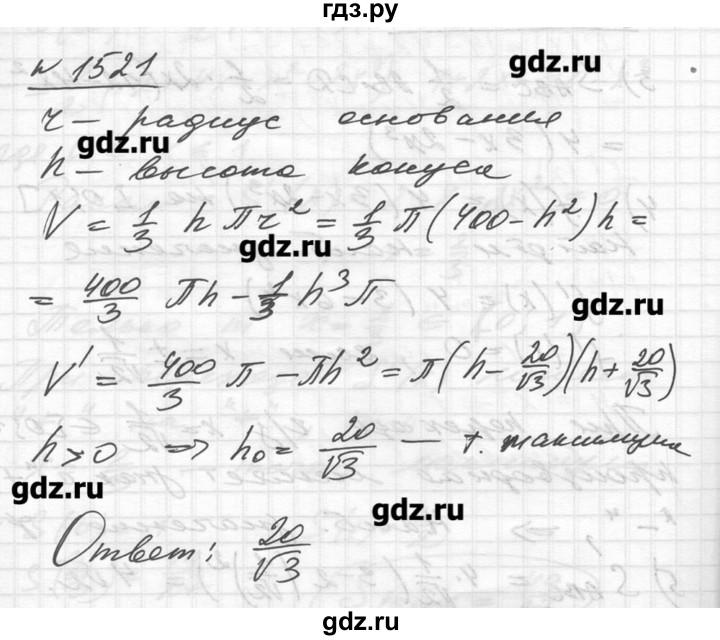 гдз.ру
gdz.ru
N 1521
r — радиус основания
gdz.ru
h — высота конуса
V = 1/3 h π r² = 1/3 π (400 - h²) h =
gdz.ru
= 400/3 πh - 1/3 h³ π
gdz.ru
V' = 400/3 π - πh² = π(h - 20/√3)(h + 20/√3)
h > 0 => h₀ = 20/√3 — т. максимума
gdz.ru
gdz.ru
Ответ: 20/√3
gdz.ru